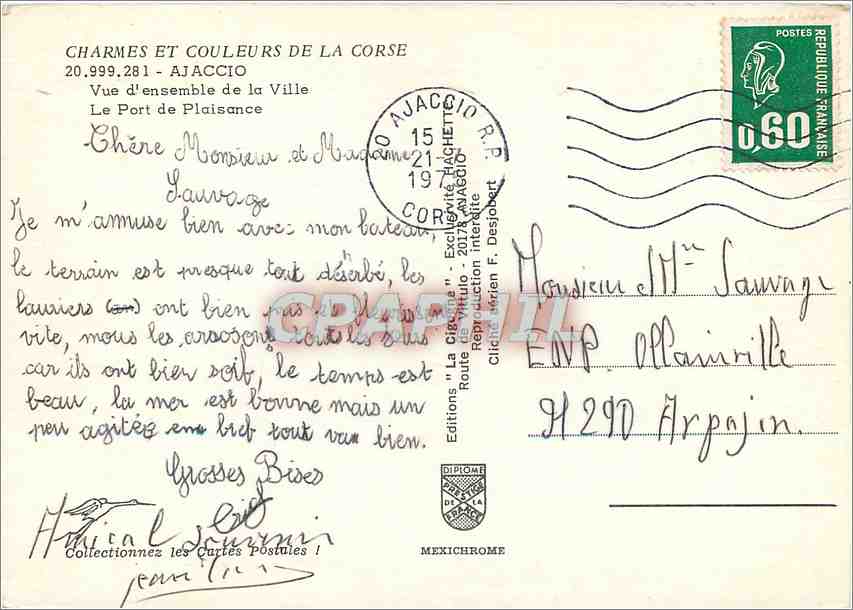 CHARMES ET COULEURS DE LA CORSE
20.999.281 - AJACCIO
Vue d'ensemble de la Ville
Le Port de Plaisance
Chère Monsieur et Madame
Sauvage
Je m'amuse bien avec mon bateau,
le terrain est presque tout déserbé, les
lauriers ont bien pris et fleurissent
vite, nous les arosons tout les soirs
car ils ont bien soif, le temps est
beau, la mer est bonne mais un
peu agitée en bieb tout va bien.
Grosses Bises
Amical Souvenir
Collectionnez les Cartes Postales !
20 AJACCIO R.P.
15
21-7
197
CORSE
Editions "La Cigogne" - Exclusivité HACHETTE
Route de Vittulo - 20178 AJACCIO
Reproduction interdite
Cliché aérien F. Desjobert
CPAPHIL
DIPLOME
PRESTIGE
DE LA
FRANCE
MEXICHROME
POSTES
REPUBLIQUE FRANÇAISE
0,60
Monsieur Mme Sauvage
ENP. Ollainville
91290 Arpajon.